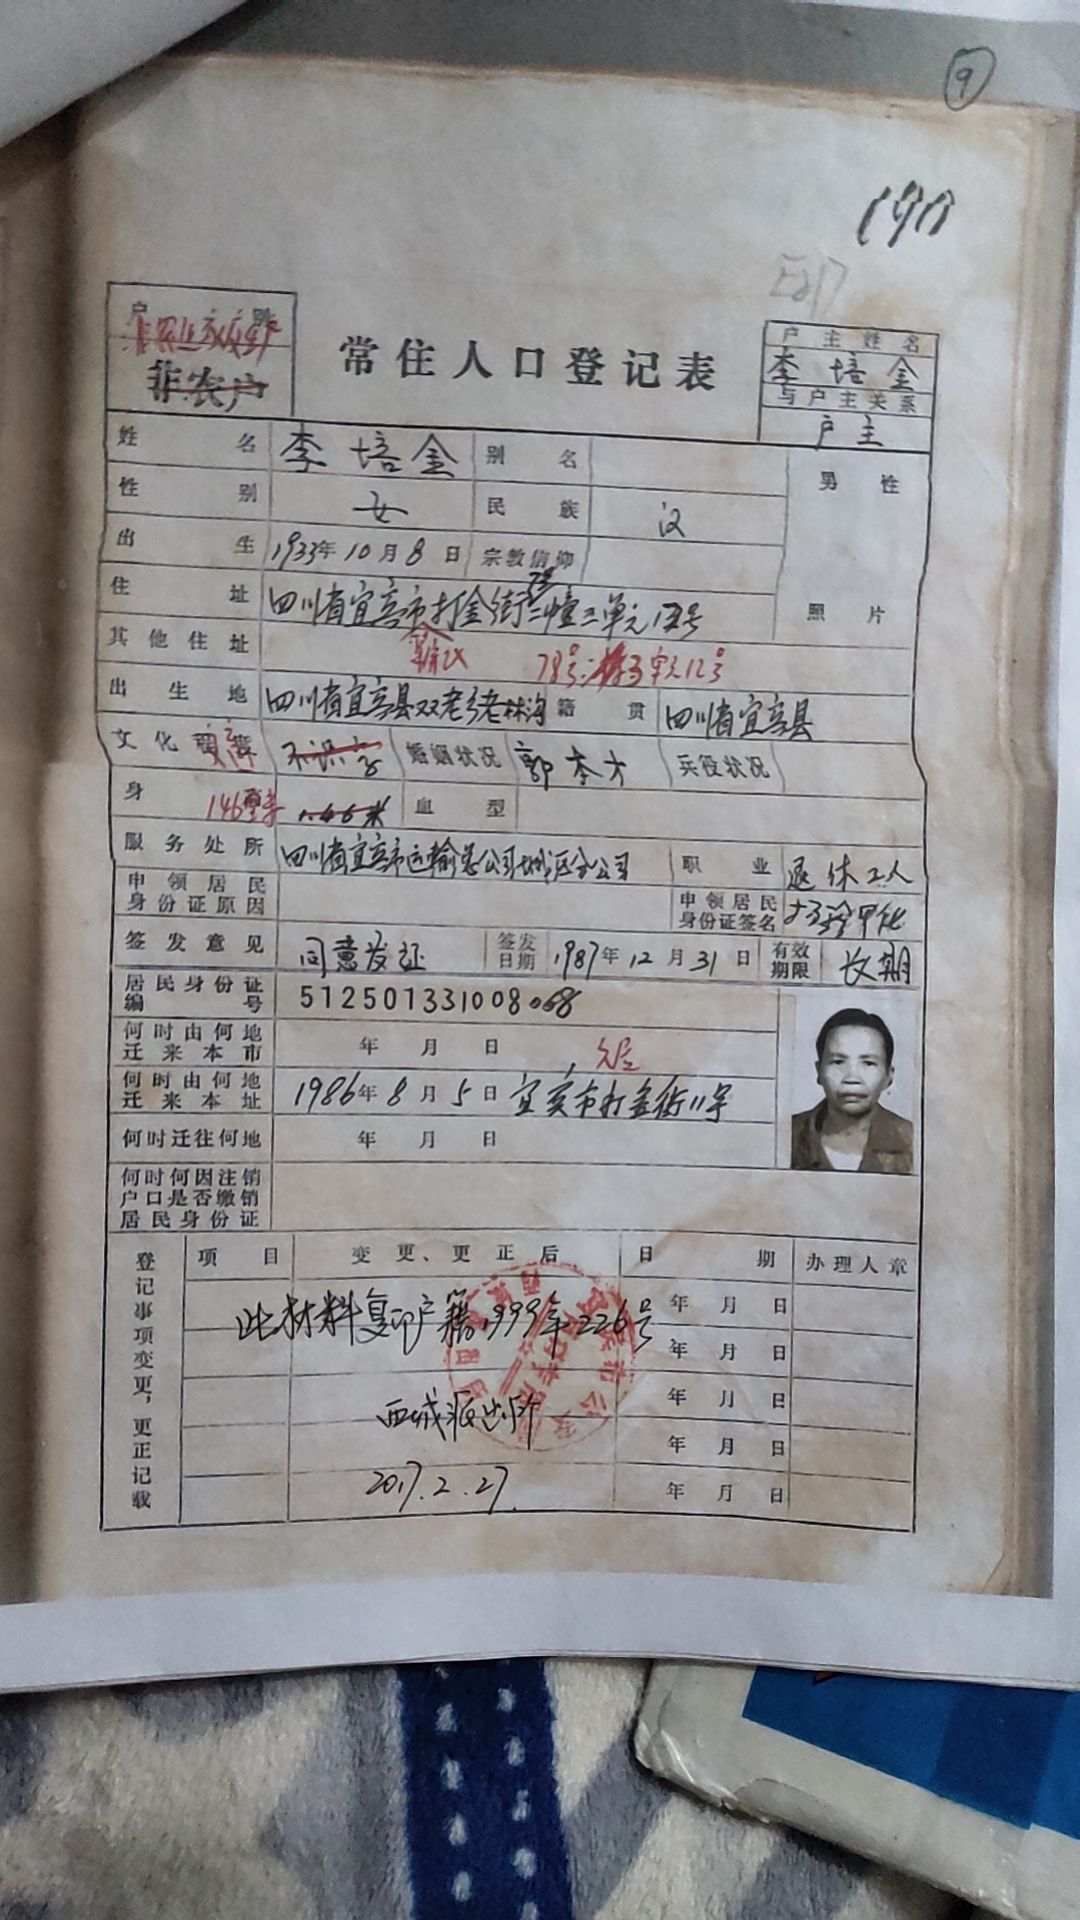 9
户别
非农户
常住人口登记表
户主姓名
李培金
与户主关系
户主
姓名 李培金 别名
男性
性别 女 民族 汉
出生 1933年10月8日 宗教信仰
住址 四川省宜宾市打金街二幢三单元
照片
其他住址
78号 单元12号
出生地 四川省宜宾县双老乡老林沟 籍贯 四川省宜宾县
文化程度 不识字 婚姻状况 郭本才 兵役状况
身 146厘米 1.46米 血型
服务处所 四川省宜宾市运输总公司城区分公司 职业 退休工人
申领居民身份证原因 申领居民身份证签名
签发意见 同意发证 签发日期 1987年12月31日 有效期限 长期
居民身份证编号 512501331008068
何时由何地迁来本市 年 月 日
何时由何地迁来本址 1986年8月5日 宜宾市打金街11号
何时迁往何地 年 月 日
何时何因注销户口是否缴销居民身份证
登记事项变更、更正记载
项目 变更、更正后 日期 办理人章
年 月 日
此材料复印户籍1999年226号
年 月 日
年 月 日
西城派出所
年 月 日
2017.2.27.
年 月 日